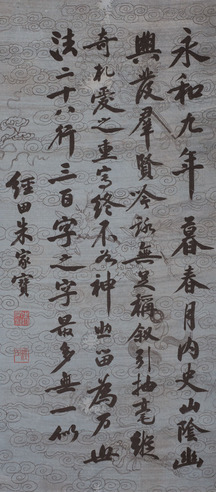 永和九年暮春月内史山陰幽
興發羣賢吟詠無足稱叙引抽毫縱
奇札愛之重寫終不如神助留為万世
法二十八行三百字之字最多無一似
經田朱家寶